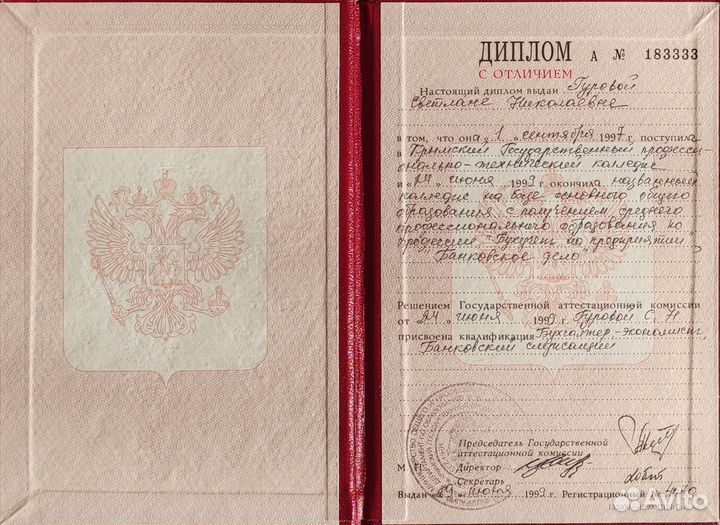 ДИПЛОМ А № 183333
С ОТЛИЧИЕМ
Настоящий диплом выдан Гуровой
Светлане Николаевне
в том, что она „1„ сентября 1997 г. поступила
в Крымский Государственный професси-
онально-технический колледж
и „24„ июня 1999 г. окончила названный
колледж на базе основного общего
образования с получением среднего
профессионального образования по
профессии
Банковское дело
Решением Государственной аттестационной комиссии
от „24„ июня 1999 г. Гуровой С. Н.
присвоена квалификация Бухгалтер-экономист,
Банковский
Председатель Государственной
аттестационной комиссии
М. П. Директор
Секретарь
Выдан июня 1999 г. Регистрационный №
Avito